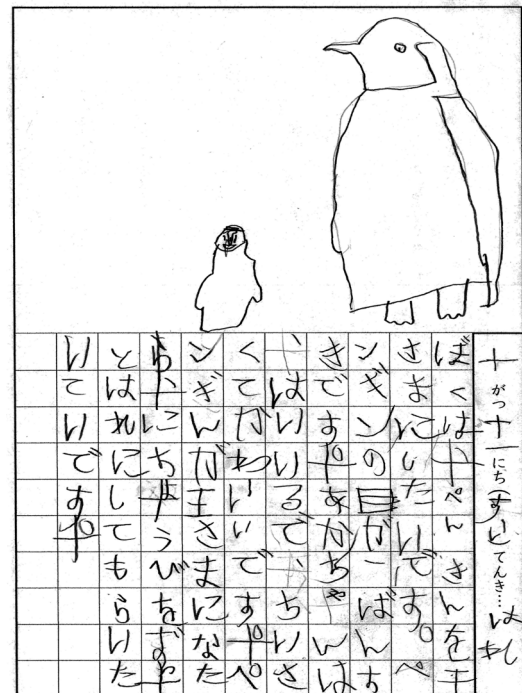 十がつ十一にち(すい)てんき…はれ
ぼくは、ぺんきんを王
さまにしたいです。ぺ
ンギンの目が一ばんす
きです。あかちゃんは
、はいいるで、ちいさ
くてかわいいです。ペ
ンぎんが王さまになた
ら、にちようびをずっ
とはれにしてもらいた
いていです。